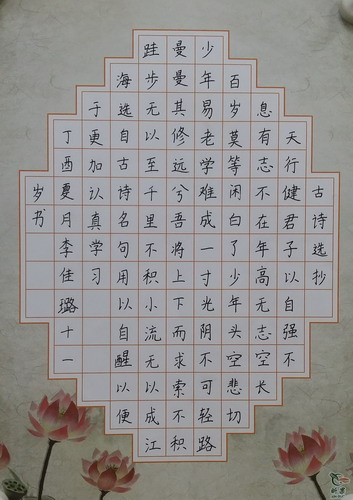 古诗选抄
天行健君子以自强不
息有志不在年高无志空长
百岁莫等闲白了少年头空悲切
少年易老学难成一寸光阴不可轻路
曼曼其修远兮吾将上下而求索不积
跬步无以至千里不积小流无以成江
海选自古诗名句用以自醒以便
于更加认真学习
丁酉夏月李佳璐十一
岁书